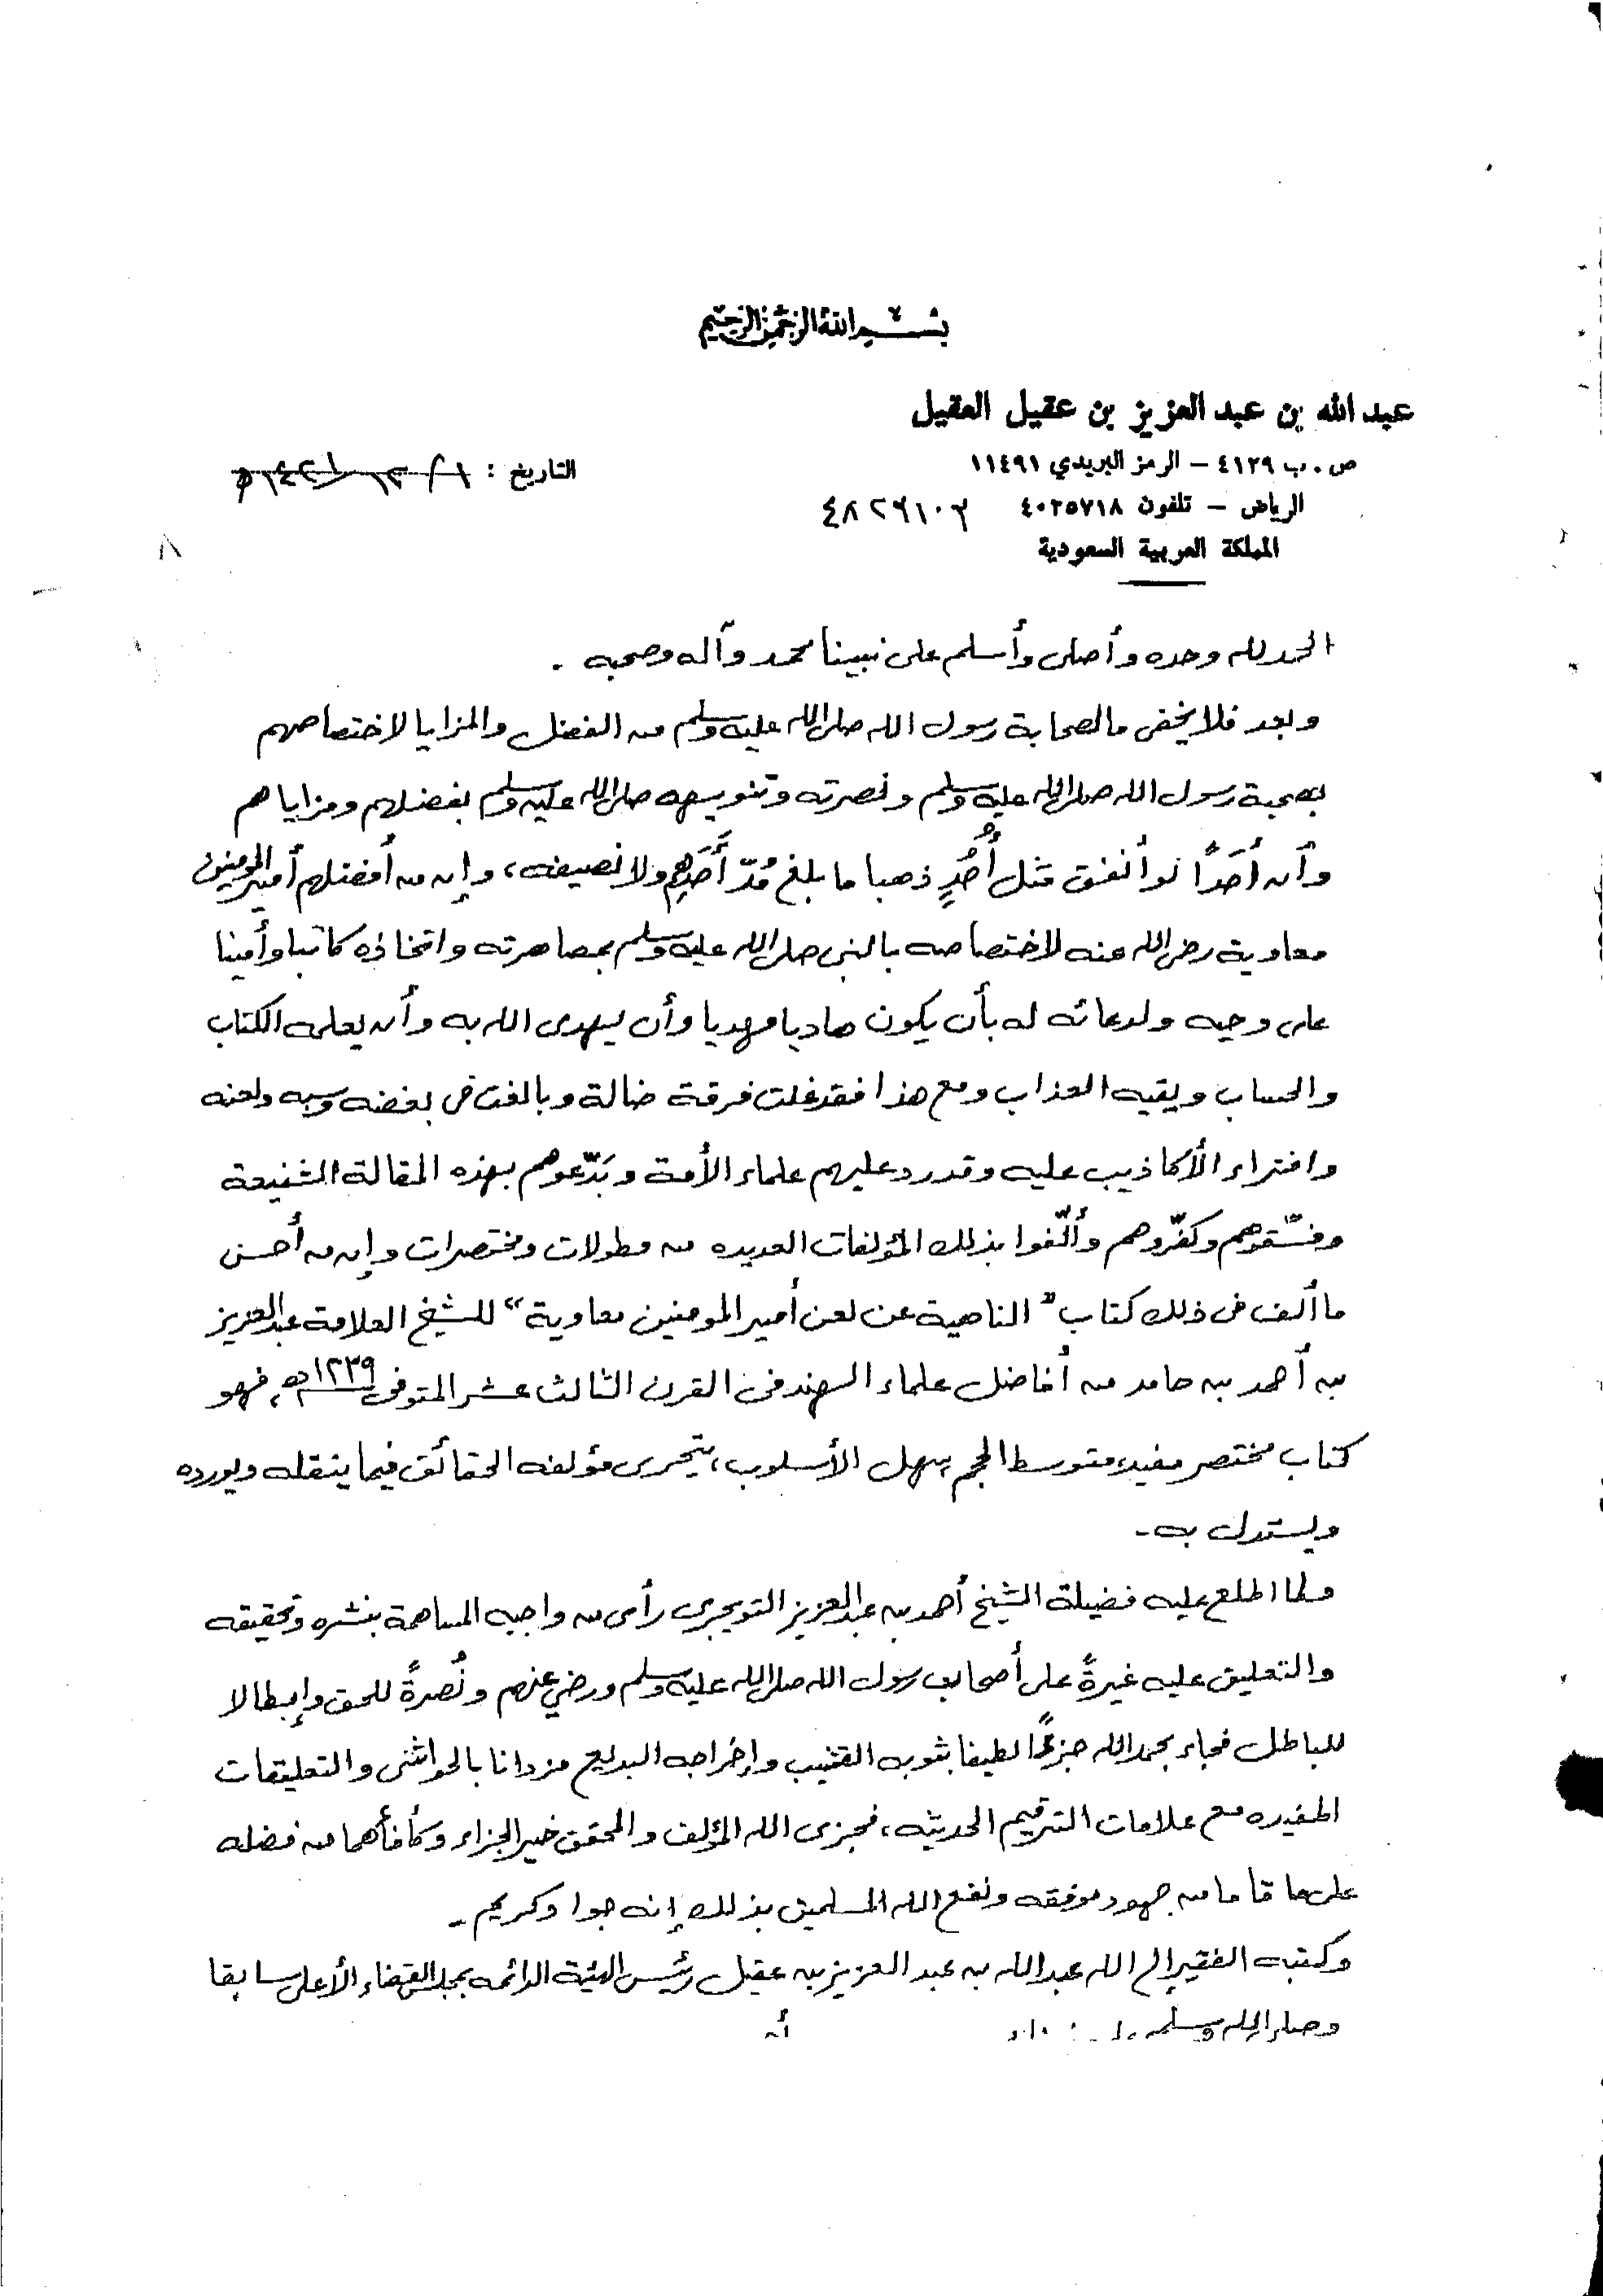 بسم الله الرحمن الرحيم
عبد الله بن عبد العزيز بن عقيل العقيل
ص . ب ٤١٢٩ – الرمز البريدي ١١٤٩١
التاريخ :
الرياض – تلفون ٤٠٢٥٧١٨ ٤٨٢٦١٠٣
المملكة العربية السعودية
الحمد لله وحده وأصلى وأسلم على نبينا محمد وآله وصحبه .
وبعد فلا يخفى ما لصحابة رسول الله صلى الله عليه وسلم من الفضل والمزايا لاختصاصهم
بصحبة رسول الله صلى الله عليه وسلم ونصرته وتنويهه صلى الله عليه وسلم بفضلهم ومزاياهم
وأن أَحَداً لو أنفق مثل أُحُدٍ ذهبا ما بلغ مُدّ أَحَدِهِم ولا نصيفه، وإن من أفضلهم أمير المومنين
معاوية رضى الله عنه لاختصاصه بالنبى صلى الله عليه وسلم بمصاهرته واتخاذه كاتبا وأمينا
على وحيه ولدعائه له بأن يكون هاديا مهديا وأن يهدى الله به وأن يعلمه الكتاب
والحساب ويقيه العذاب ومع هذا فقد غلت فرقة ضالة وبالغت فى بغضه وسبه ولعنه
وافتراء الأكاذيب عليه وقد رد عليهم علماء الأمة وبَدّعوهم بهذه المقالة الشنيعة
وفسّقوهم وكفّروهم وأُلّفوا بذلك المؤلفات العديده من مطولات ومختصرات وإن من أحسن
ما ألف فى ذلك كتاب " الناهية عن لعن أمير المومنين معاوية " للشيخ العلامة عبدالعزيز
بن أحمد بن حامد من أفاضل علماء الهند فى القرن الثالث عشر المتوفى ١٢٣٩ هـ، فهو
كتاب مختصر مفيد، متوسط الحجم سهل الأسلوب، يتحرى مؤلفه الحقائق فيما ينقله ويورده
ويستدل به -
ولما اطلع عليه فضيلة الشيخ أحمد بن عبدالعزيز التويجرى رأى من واجبه المساهمة بنشره وتحقيقه
والتعليق عليه غيرةً على أصحاب رسول الله صلى الله عليه وسلم ورضي عنهم ونُصرةً للحق وإبطالا
للباطل فجاء بحمد الله جزءًا لطيفا بثوبه القشيب وإخراجه البديع مزدانا بالحواشى والتعليقات
المفيده مع علامات الترقيم الحديثه، فجزى الله المؤلف والمحقق خير الجزاء وكافأهما من فضله
على ما قاما من جهود موفقه ونفع الله المسلمين بذلك إنه جواد كريم -
وكتبه الفقير إلى الله عبدالله بن عبد العزيز بن عقيل رئيس الهيئة الدائمه بمجلس القضاء الأعلى سابقا
وصلى الله وسلم